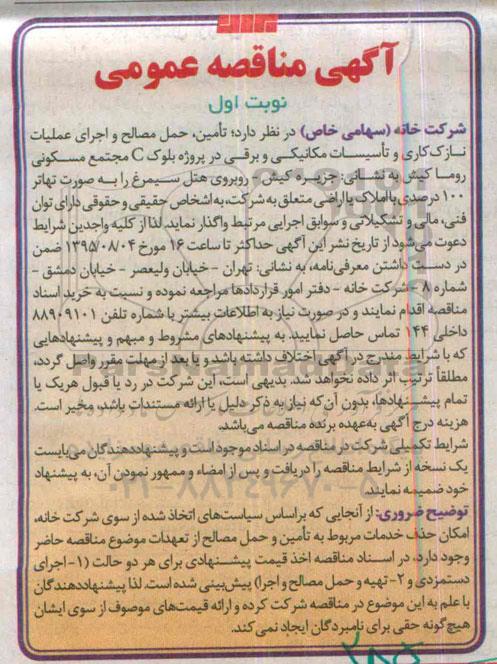 آگهی مناقصه عمومی
نوبت اول
شرکت خانه (سهامی خاص) در نظر دارد؛ تأمین، حمل مصالح و اجرای عملیات
نازک‌کاری و تأسیسات مکانیکی و برقی در پروژه بلوک C مجتمع مسکونی
روما کیش به نشانی: جزیره کیش - روبروی هتل سیمرغ را به صورت تهاتر
۱۰۰ درصدی با املاک یا اراضی متعلق به شرکت، به اشخاص حقیقی و حقوقی دارای توان
فنی، مالی و تشکیلاتی و سوابق اجرایی مرتبط واگذار نماید. لذا از کلیه واجدین شرایط
دعوت می‌شود از تاریخ نشر این آگهی حداکثر تا ساعت ۱۶ مورخ ۱۳۹۵/۰۸/۰۴ ضمن
در دست داشتن معرفی‌نامه، به نشانی: تهران - خیابان ولیعصر - خیابان دمشق -
شماره ۸ - شرکت خانه - دفتر امور قراردادها مراجعه نموده و نسبت به خرید اسناد
مناقصه اقدام نمایند و در صورت نیاز به اطلاعات بیشتر با شماره تلفن ۸۸۹۰۹۱۰۱
داخلی ۱۴۴ تماس حاصل نمایید. به پیشنهادهای مشروط و مبهم و پیشنهادهایی
که با شرایط مندرج در آگهی اختلاف داشته باشد و یا بعد از مهلت مقرر واصل گردد،
مطلقاً ترتیب اثر داده نخواهد شد. بدیهی است، این شرکت در رد یا قبول هریک یا
تمام پیشنهادها، بدون آن‌که نیاز به ذکر دلیل یا ارائه مستندات باشد، مخیر است.
هزینه درج آگهی به‌عهده برنده مناقصه می‌باشد.
شرایط تکمیلی شرکت در مناقصه در اسناد موجود است و پیشنهاددهندگان می‌بایست
یک نسخه از شرایط مناقصه را دریافت و پس از امضاء و ممهور نمودن آن، به پیشنهاد
خود ضمیمه نمایند.
توضیح ضروری: از آنجایی که براساس سیاست‌های اتخاذ شده از سوی شرکت خانه،
امکان حذف خدمات مربوط به تأمین و حمل مصالح از تعهدات موضوع مناقصه حاضر
وجود دارد، در اسناد مناقصه اخذ قیمت پیشنهادی برای هر دو حالت (۱- اجرای
دستمزدی و ۲- تهیه و حمل مصالح و اجرا) پیش‌بینی شده است. لذا پیشنهاددهندگان
با علم به این موضوع در مناقصه شرکت کرده و ارائه قیمت‌های موصوف از سوی ایشان
هیچ‌گونه حقی برای نامبردگان ایجاد نمی‌کند.
ParsNamadData
۰۲۱-۸۸۳۴۹۶۷۰-۵